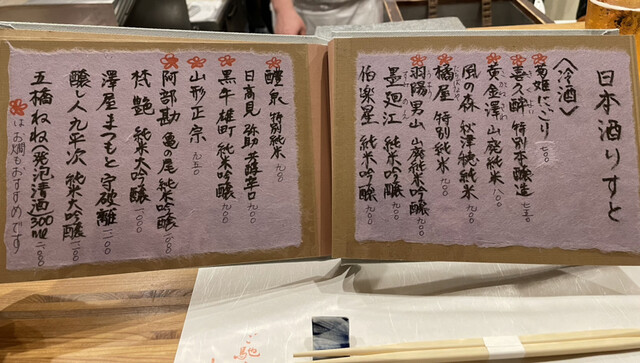 日本酒りすと
〈冷酒〉
菊姫にごり 七〇〇
喜久醉 特別本醸造 七五〇
黄金澤 山廃純米 八〇〇
風の森 秋津穂純米 九〇〇
橘屋 特別純米 九〇〇
羽陽男山 山廃純米吟醸 九〇〇
墨廼江 純米吟醸 九〇〇
伯楽星 純米吟醸 九〇〇
醴泉 特別純米 九〇〇
日高見 弥助 芳醸辛口 九〇〇
黒牛 雄町 純米吟醸 九〇〇
山形正宗 九五〇
阿部勘 亀の尾 純米吟醸
梵 艶 純米大吟醸
澤屋まつもと 守破離
醸し人九平次 純米大吟醸
五橋ねね(発泡清酒)300ml
はお燗もおすすめです